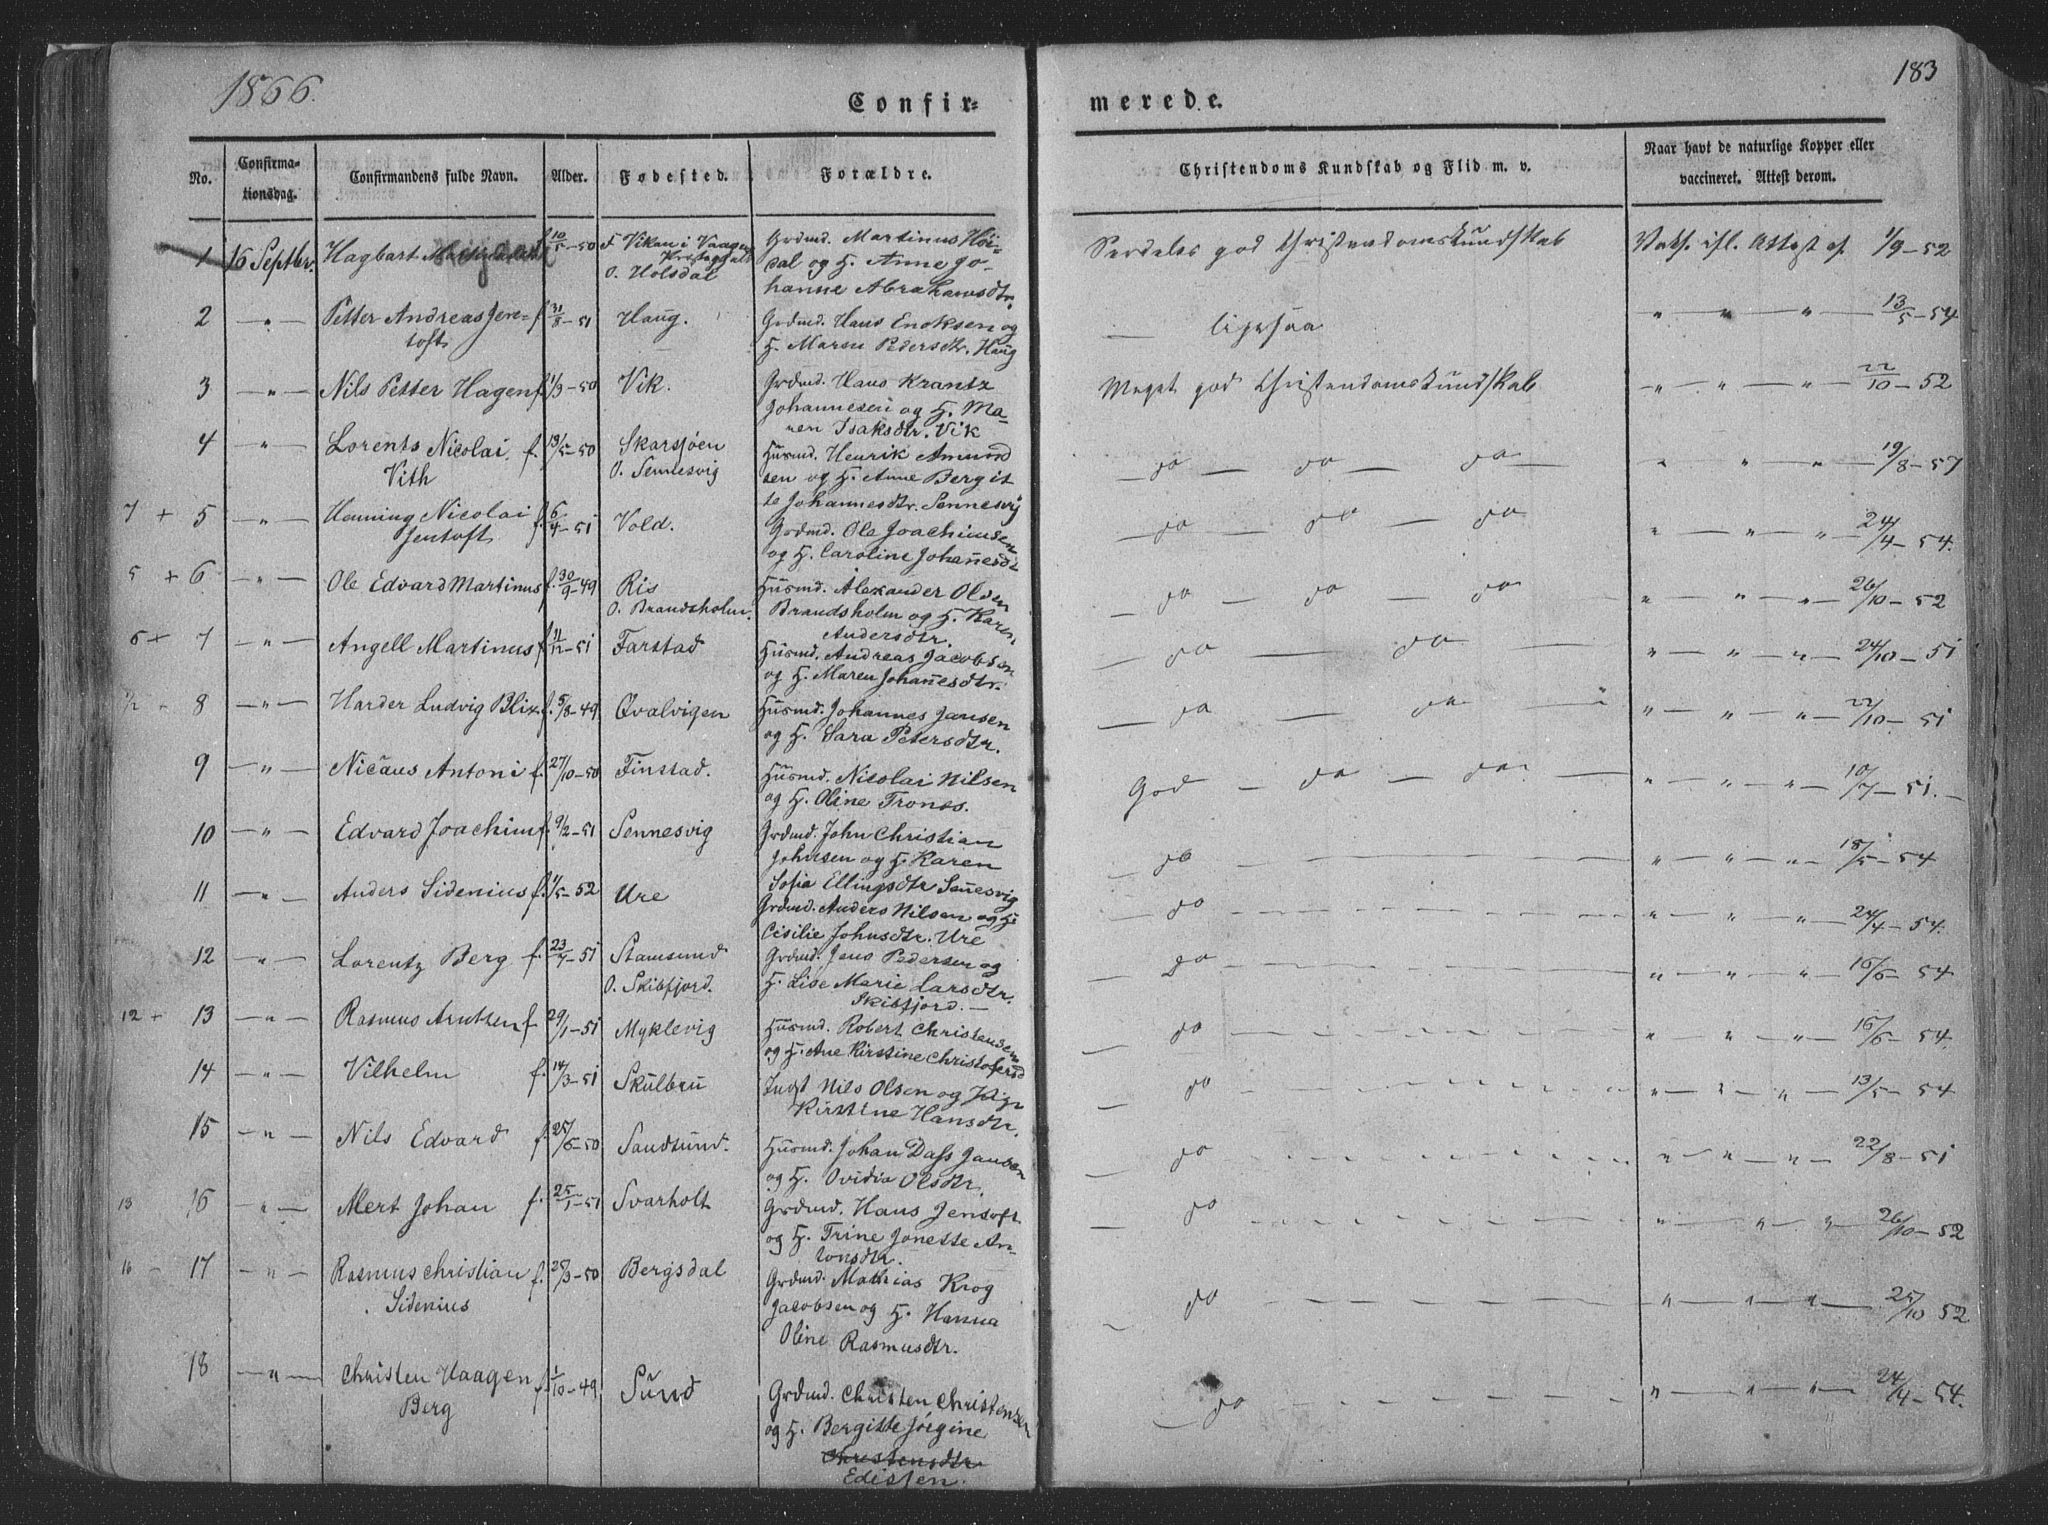 1866.
183
Confir=
merede.
No.
Confirma-
tionsdag.
Confirmandens fulde Navn.
Alder.
Fødested.
Forældre.
Christendoms Kundskab og Flid m. v.
Naar havt de naturlige Kopper eller
vaccineret. Attest derom.
1 16 Septbr. Hagbart 10/5-50 F. Vikan i Vaagen Grdmd. Martinus Høi- Serdeles god Christendomskundskab Vaks. ifl. Attest af 1/9-52
O. Holsdal dal og H. Anne Jo-
hanne Abrahamsdtr.
2 -"- Petter Andreas Jen- f. 31/8-51 Haug. Grdmd. Hans Enoksen og — ligesaa " — " — " — 13/5-54
toft H. Maren Pedersdtr. Haug
3 -"- Nils Petter Hagen f. 1/3-50 Vik. Grdmd. Hans Krantz Meget god Christendomskundskab " — " — " — 22/10-52
Johannesen og H. Ma-
ren Isaksdtr. Vik
4 -"- Lorents Nicolai f. 13/5-50 Skarsjøen Husmd. Henrik Amund — do — do — do — " " " — 19/8-57
Vith O. Sennesvig sen og H. Anne Bergit
te Johannesdtr. Sennesvig
7 + 5 -"- Henning Nicolai f. 6/4-51 Vold. Grdmd. Ole Joachimsen — do — do — do " — " — " — 24/4-54.
Jentoft og H. Caroline Johannesdt
5 + 6 -"- Ole Edvard Martinus f. 30/9-49 Ris Husmd. Alexander Olsen — do — do — do " — " — " — 26/10-52
O. Brandsholm. Brandsholm og H. Karen
Andersdtr.
6 + 7 -"- Angell Martinus f. 11/12-51 Farstad Husmd. Andreas Jacobsen — do — do — " — " — " — 24/10-51
og H. Maren Johanesdtr.
8 -"- Harder Ludvig Blix f. 5/8-49 Qvalvigen Husmd. Johannes Jansen — do — do — " " — " — " — 22/10-51
og H. Sara Petersdtr.
9 -"- Nicäus Antoni f. 27/10-50 Finstad. Husmd. Nicolai Nilsen God — do — do — " — " — " — 10/7-51.
og H. Oline Trones.
10 -"- Edvard Joachim f. 9/2-51 Sennesvig Grdmd. John Christian — do — " — " — " — 18/5-54
Johnsen og H. Karen
Sofia Ellingsdtr Senesvig
11 -"- Anders Sidenius f. 1/5-52 Ure Grdmd. Anders Nilsen og H. — do — " — " — " — 24/4-54.
Cisilie Johnsdtr. Ure
12 -"- Lorentz Berg f. 23/7-51 Stamsund Grdmd. Jens Pedersen og — do — " — " — " — 16/6-54.
O. Skibfjord. H. Lise Marie Larsdtr.
Skibfjord.
12 + 13 -"- Rasmus Arntzen f. 29/1-51 Myklevig Husmd. Robert Christensen — do — " — " — " — 16/6-54.
og H. Ane Kirstine Christofersd
14 -"- Vilhelm f. 14/3-51 Skulbru Indst Nils Olsen og Pige — do — " — " — " — 13/5-54
Kirstine Hansdtr.
15 -"- Nils Edvard f. 25/6-50 Sandsund. Husmd. Johan Dass Jansen — do — " — " — " — 22/8-51
og H. Ovidia Olsdtr.
13 16 -"- Mert Johan f. 25/1-51 Svarholt Grdmd. Hans Jensoft — do — " — " — " — 26/10-52
og H. Trine Jonette An-
tonsdtr.
16 - 17 -"- Rasmus Christian f. 25/3-50 Bergsdal Grdmd. Mathias Krog — do — " — " — " — 25/10 52
Sidenius Jacobsen og H. Hanna
Oline Rasmusdtr.
18 -"- Christen Haagen f. 1/10-49 Sund Grdmd. Christen Christensen — do — " — " — " — 24/4-54.
Berg og H. Bergitte Jørgine
Christensdtr
Edissen.